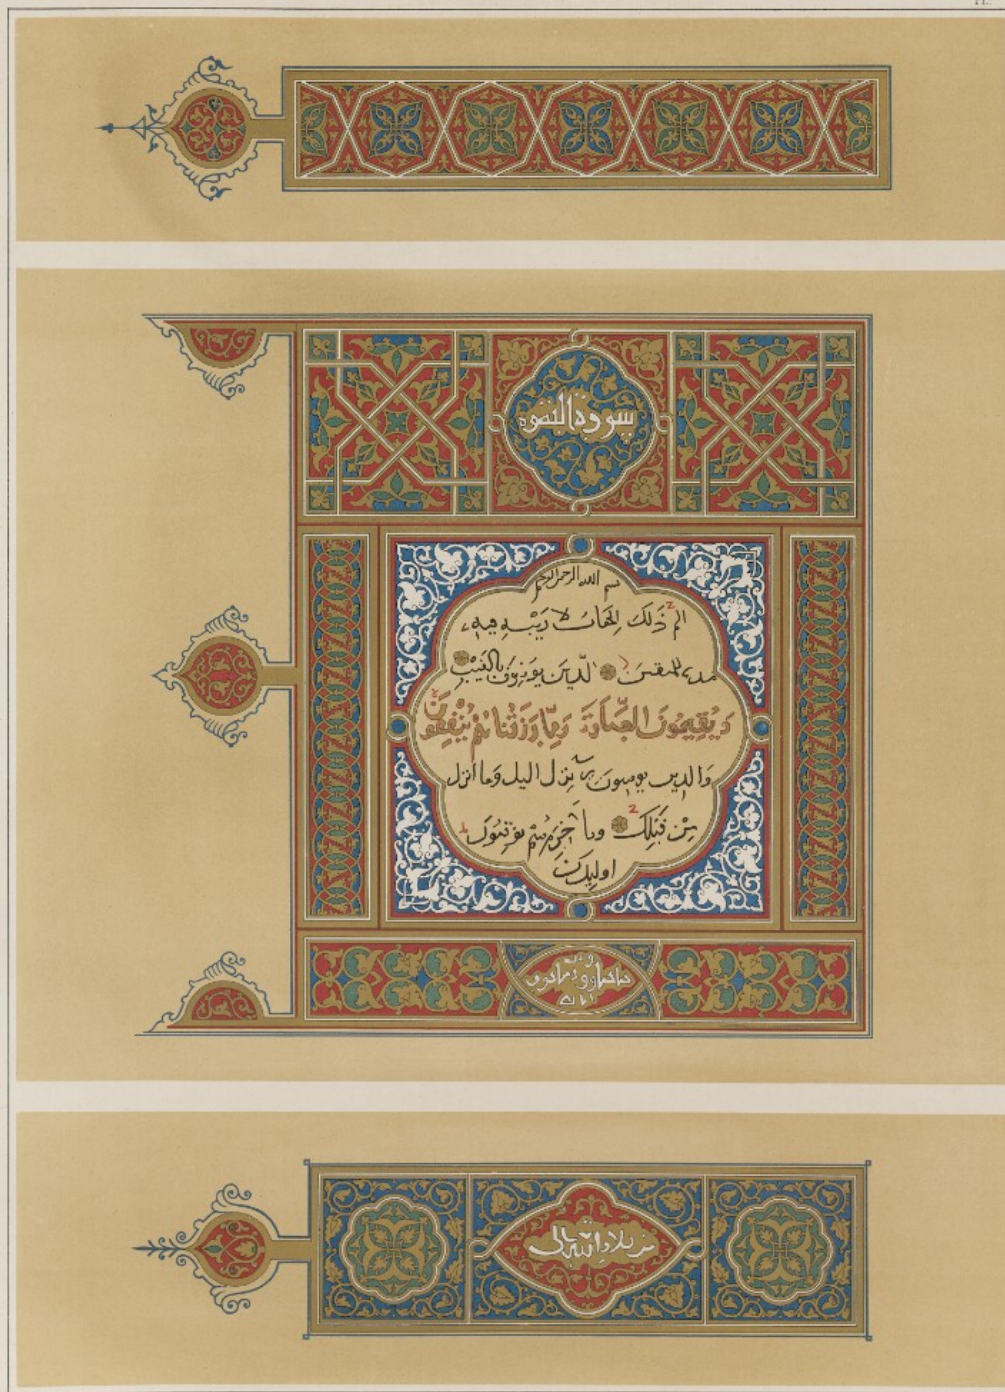 PL.
سورة البقره
بسم الله الرحمن الرحيم
الم ذَلك الكتاب لا رَيْبَ فيه
هدى للمتقين الّذين يؤمنون بالغَيْبِ
وَيُقِيمُونَ الصَّلوةَ وَمِمَّا رَزَقْنَاهُمْ يُنْفِقُونَ
وَالذين يومنون بما انزل اليك وَما أنزل
مِنْ قَبْلِكَ وبالآخرة هُمْ يوقنون
اولئك